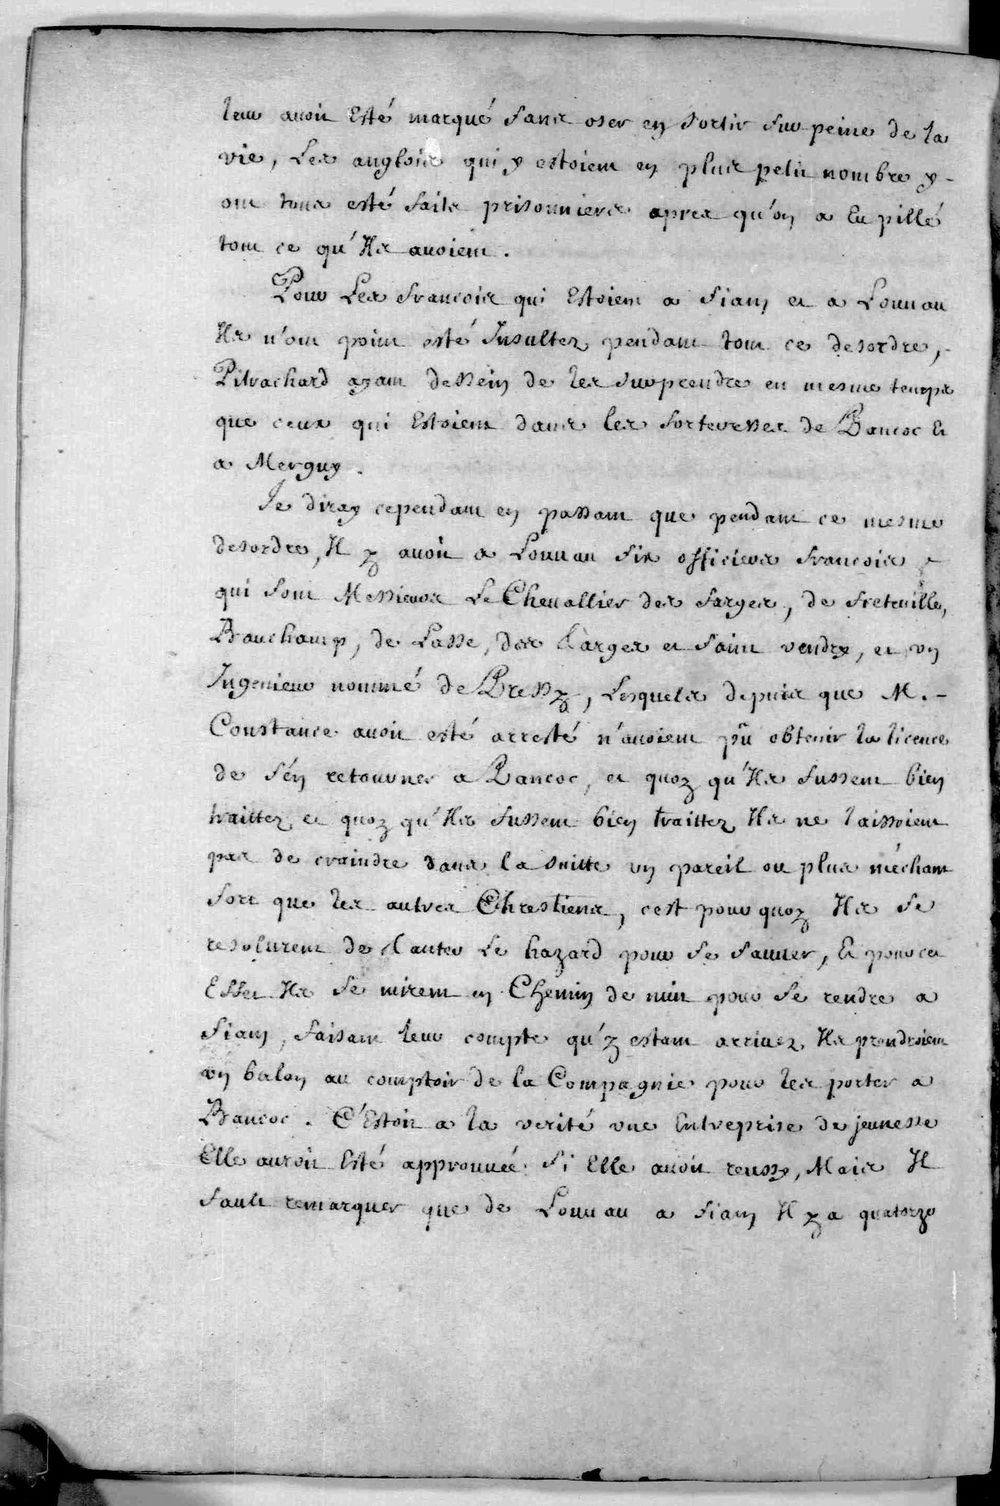 leur avoit Esté marqué Sans oser en Sortir Sur peine de la
vie, Les anglois qui y estoient en plus petit nombre y
ont tous esté faits prisonniers apres qu'on a Eu pillé
tout ce qu'Ils avoient.
Pour Les francois qui Estoient a Siam et a Louuau
Ils n'ont point esté Insultez pendant tout ce desordre,
Pitrachard ayant dessein de les Surprendre en mesme temps
que ceux qui Estoient dans les forteresses de Bancoc Et
a Merguy.
Je diray cependant en passant que pendant ce mesme
desordre, Il y avoit a Louuau Six officiers francois
qui sont Messieurs Le Chevallier des farges, de freteuille,
Beauchamp, de Lasse, des Targes et Saint vendry, et un
Ingenieur nommé de Bressy, Lesquels depuis que M.
Constance avoit esté arresté n'avoient pû obtenir la licence
de s'en retourner a Bancoc, et quoy qu'Ils fussent bien
traittez et quoy qu'Ils fussent bien traittez Ils ne laissoient
pas de craindre dans la suitte un pareil ou plus méchant
Sort que les autres Chrestiens, c'est pourquoy Ils Se
resolurent de tanter Le hazard pour Se Sauuer, Et pour cet
Effet Ils Se mirent en Chemin de nuit pour Se rendre a
Siam, faisant leur compte qu'y estant arrivez Ils prendroient
un balon au comptoir de la Compagnie pour les porter a
Bancoc. C'Estoit a la verité une Entreprise de jeunesse
Elle auroit Esté approuuée Si Elle avoit reussy, Mais Il
faut remarquer que de Louuau a Siam Il y a quatorze